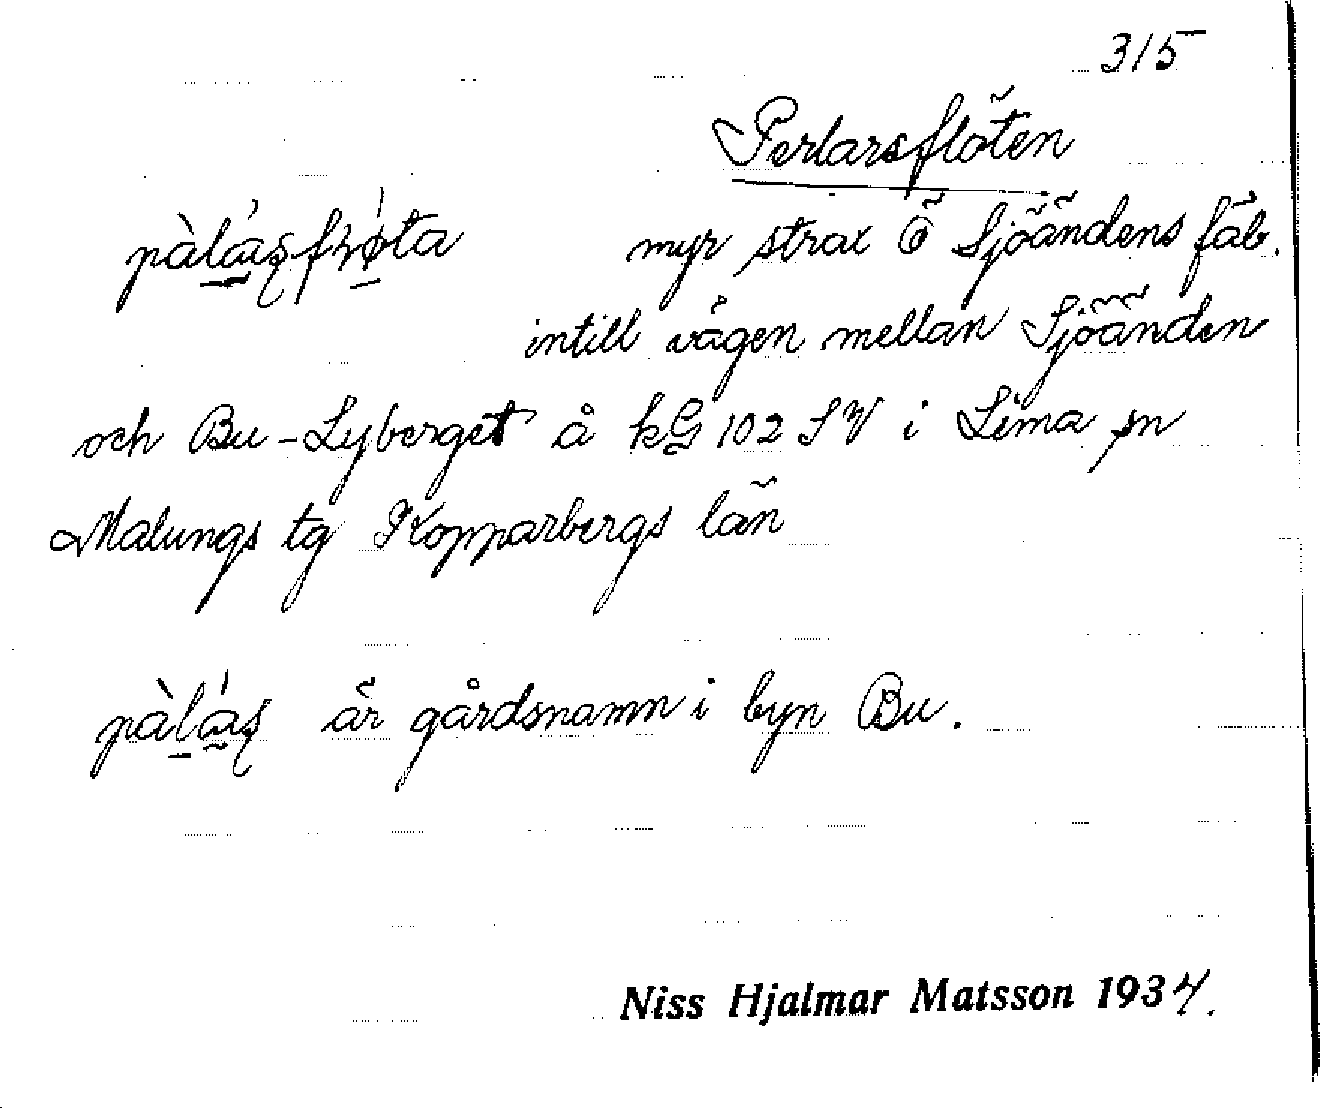 315
Perlarsflöten
myr strax Ö Sjöändens fäb.
intill vägen mellan Sjöänden
och Bu-Lyberget å kG 102 SV i Lima sn
Malungs tg Kopparbergs län
är gårdsnamn i byn Bu.
Niss Hjalmar Matsson 1934.